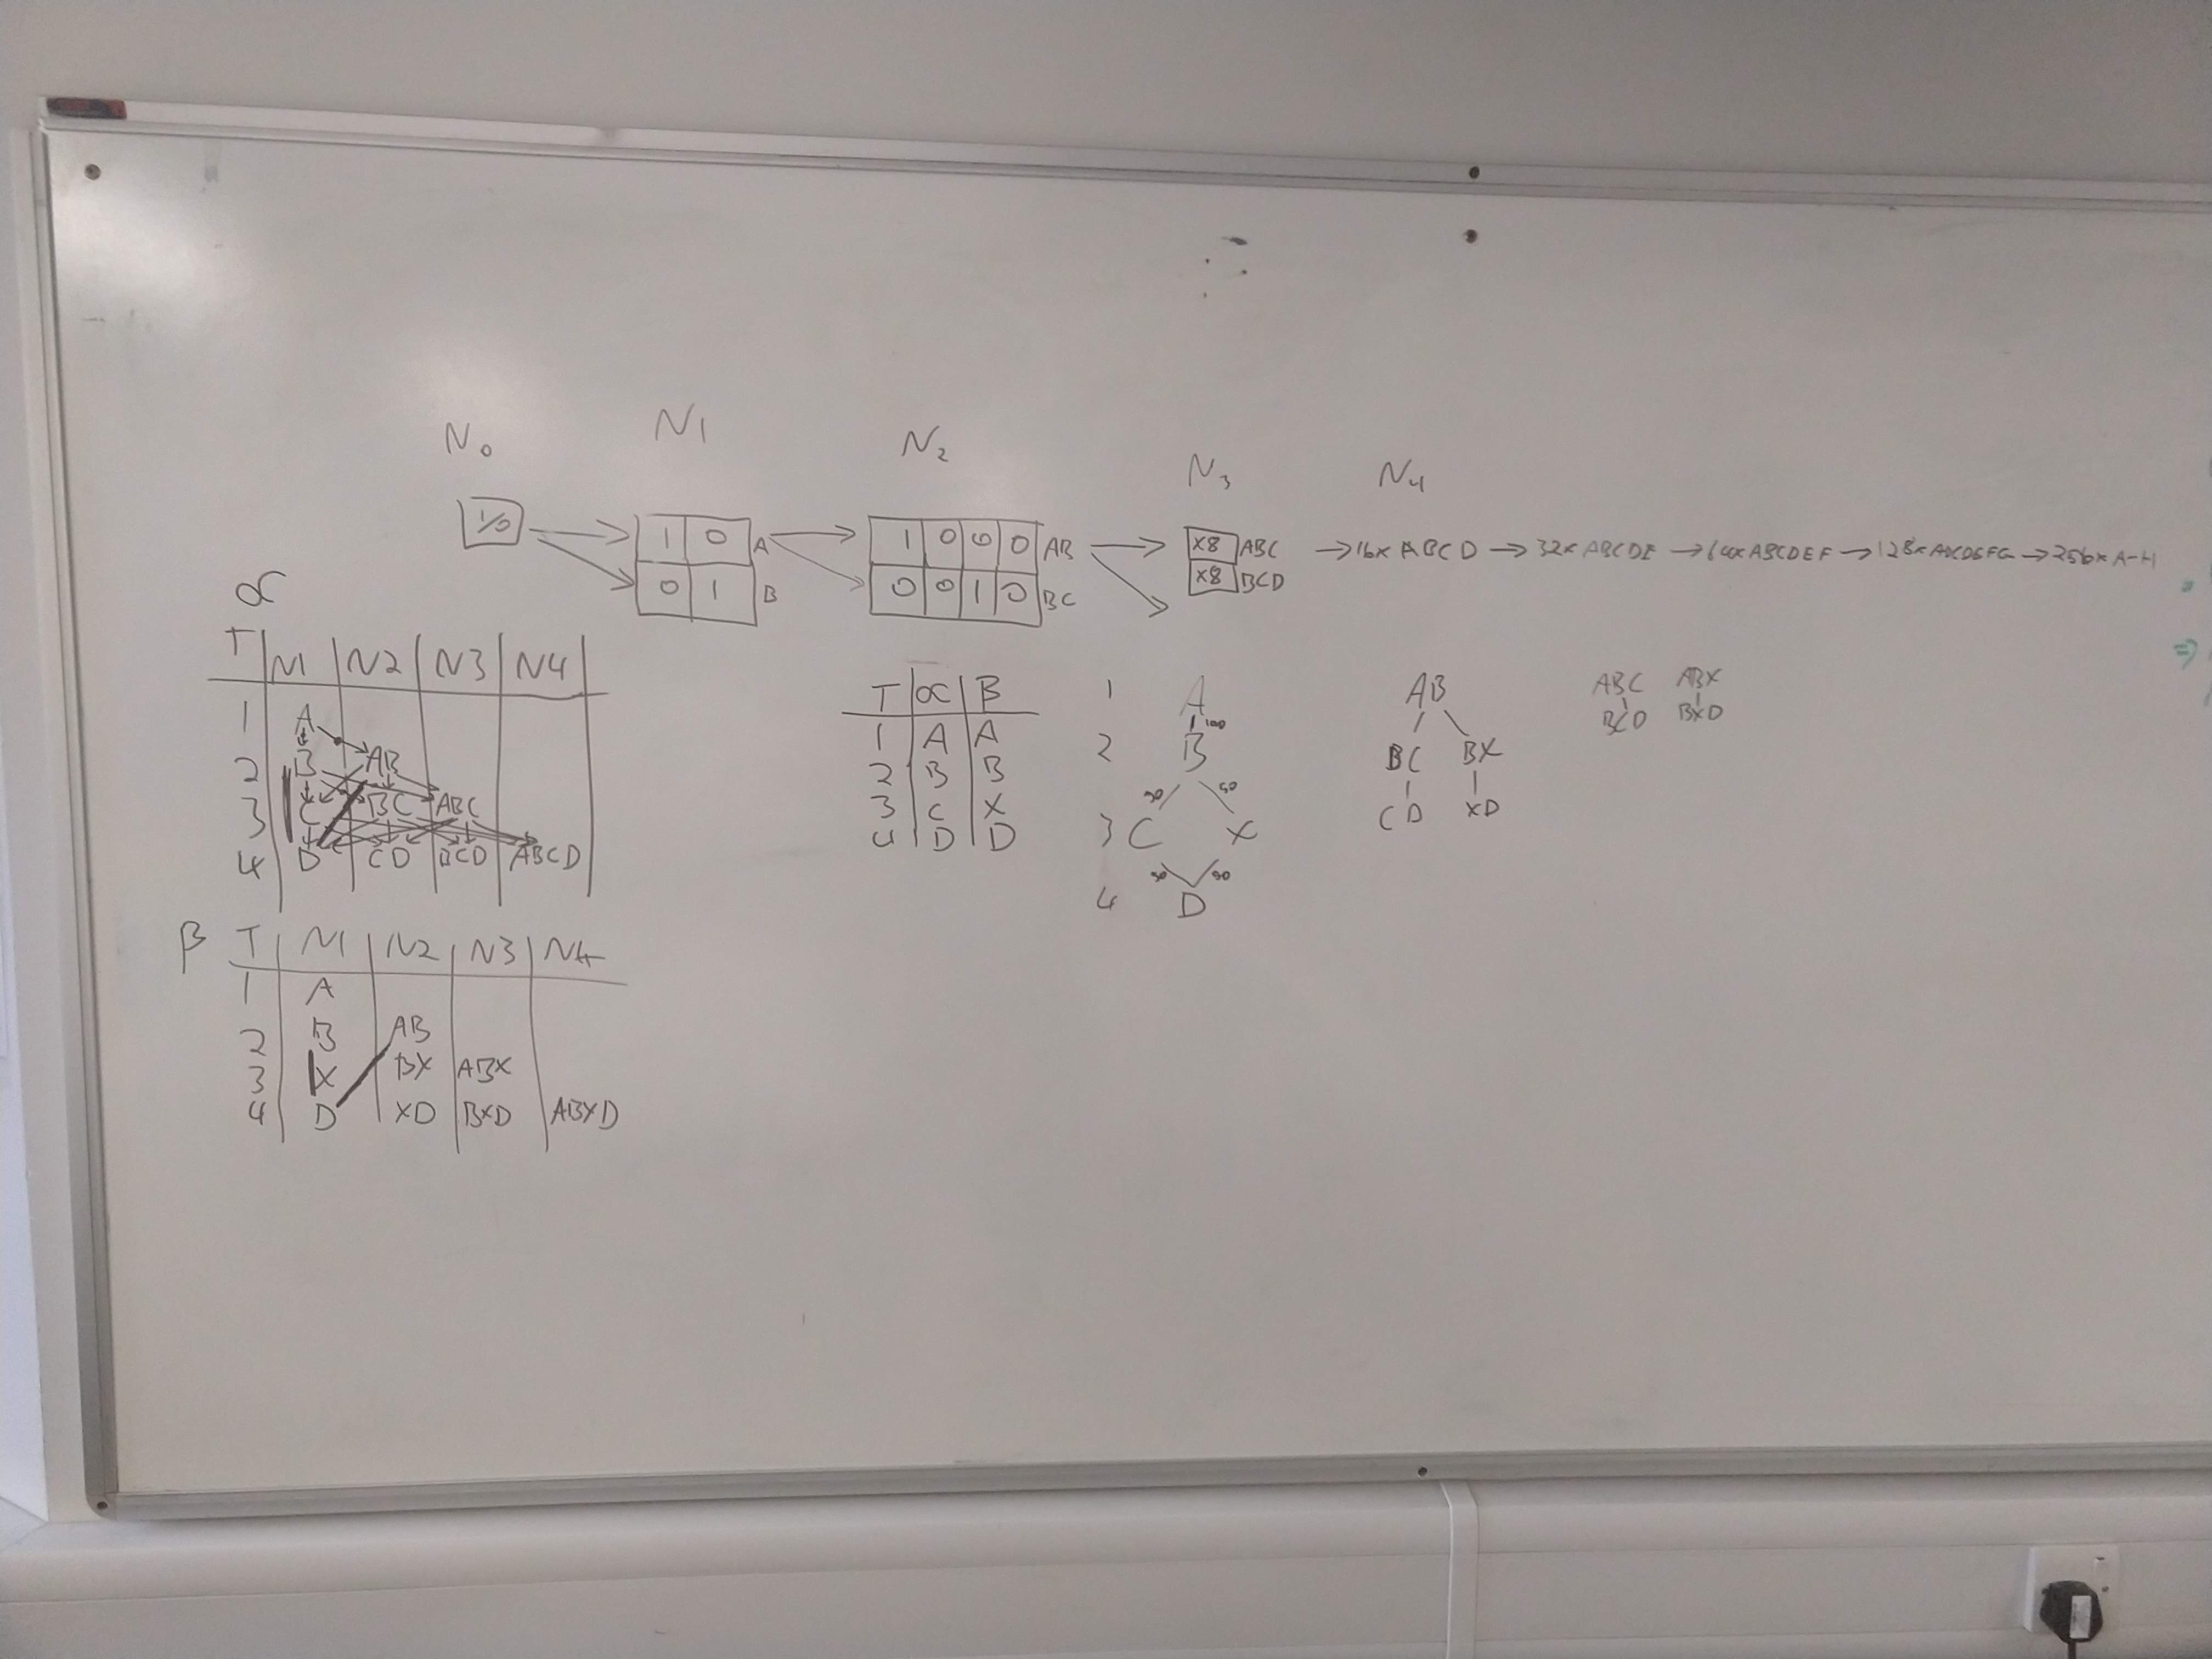 N0 N1 N2 N3 N4
1/0
1 0 A
0 1 B
1 0 0 0 AB
0 0 1 0 BC
x8 ABC
x8 BCD
→ 16x ABCD → 32x ABCDE → 64x ABCDEF → 128x ABCDEFG → 256x A-H
⇒
α
T N1 N2 N3 N4
1 A
2 B AB
3 C BC ABC
4 D CD BCD ABCD
β
T N1 N2 N3 N4
1 A
2 B AB
3 X BX ABX
4 D XD BXD ABXD
T α B
1 A A
2 B B
3 C X
4 D D
1 A
100
2 B
50 50
3 C X
50 50
4 D
AB
BC BX
CD XD
ABC ABX
BCD BXD